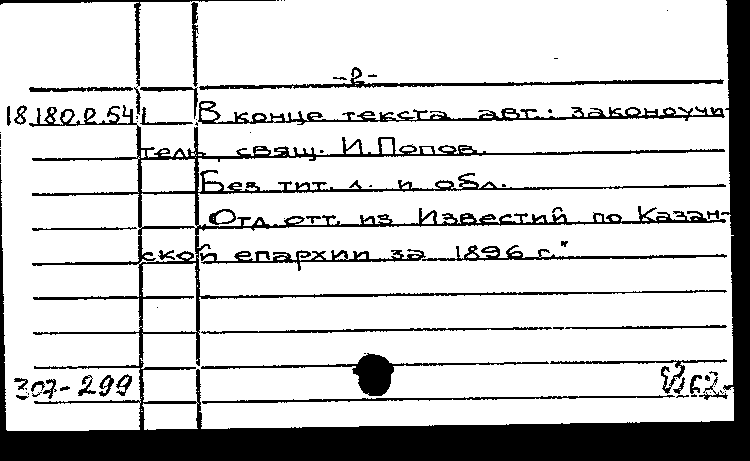 -2-
18.180.2.541 В конце текста авт.: законоучи-
тель, свящ. И.Попов.
Без тит. л. и обл.
„Отд. отт. из Известий по Казан-
ской епархии за 1896 г."
307-299